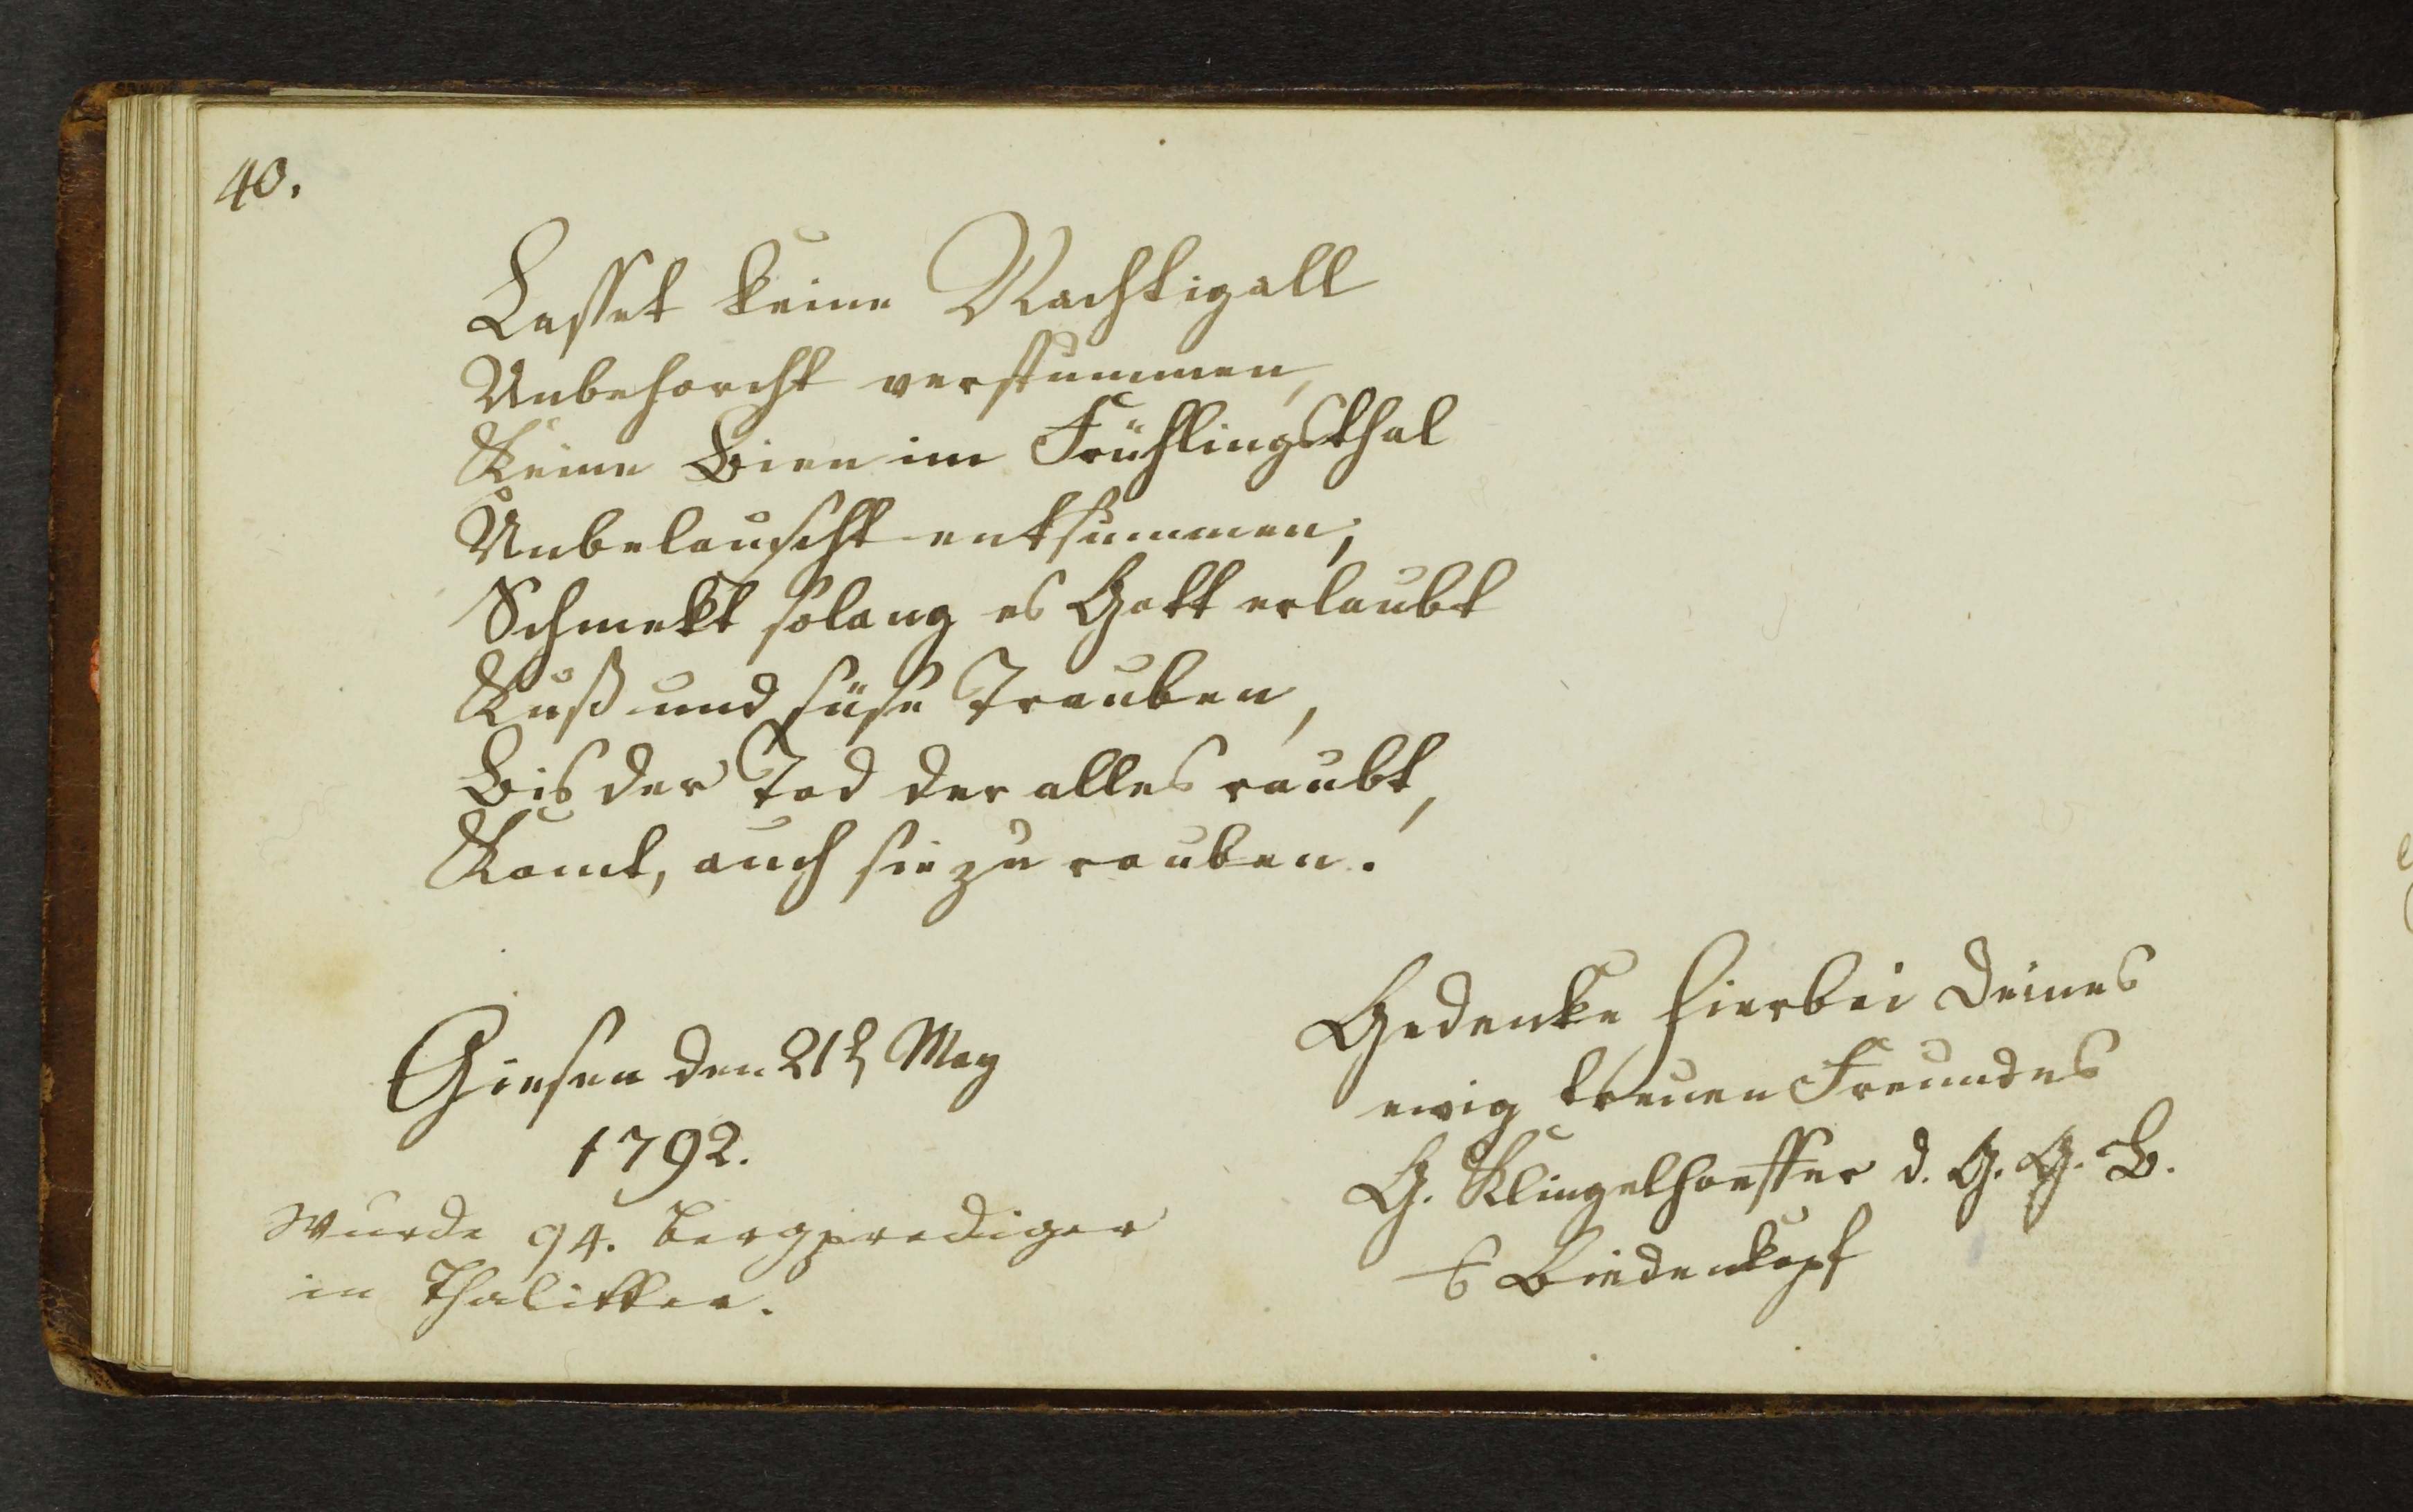 40.
Lasset keine Nachtigall
Unbehorcht verstummen,
Keine Bien im Frühlingsthal
Unbelauscht entsummen,
Schmekt solang es Gott erlaubt
Kuß und süse Trauben,
Bis der Tod der alles raubt,
Komt, auch sie zu rauben.
Giesen den 21t May
1792.
Gedenke hierbei Deines
ewig treuen Freundes
G. Klingelhoeffer d. G. G. B.
Biedenkopf
Wurde 94. Bergprediger
in Thalitter.